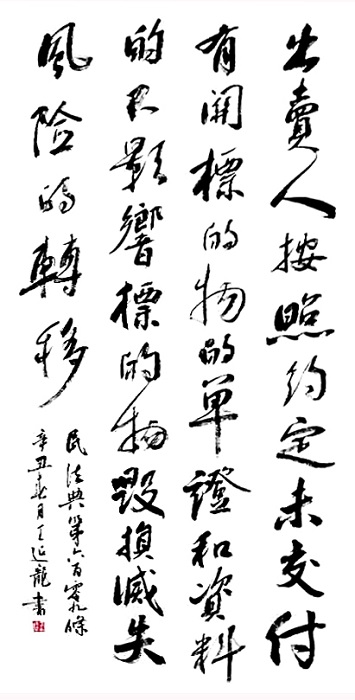 出賣人按照约定未交付
有関標的物的單證和資料
的不影響標的物毀損滅失
風险的轉移
民法典第六百零九條
辛丑春月王延龍書